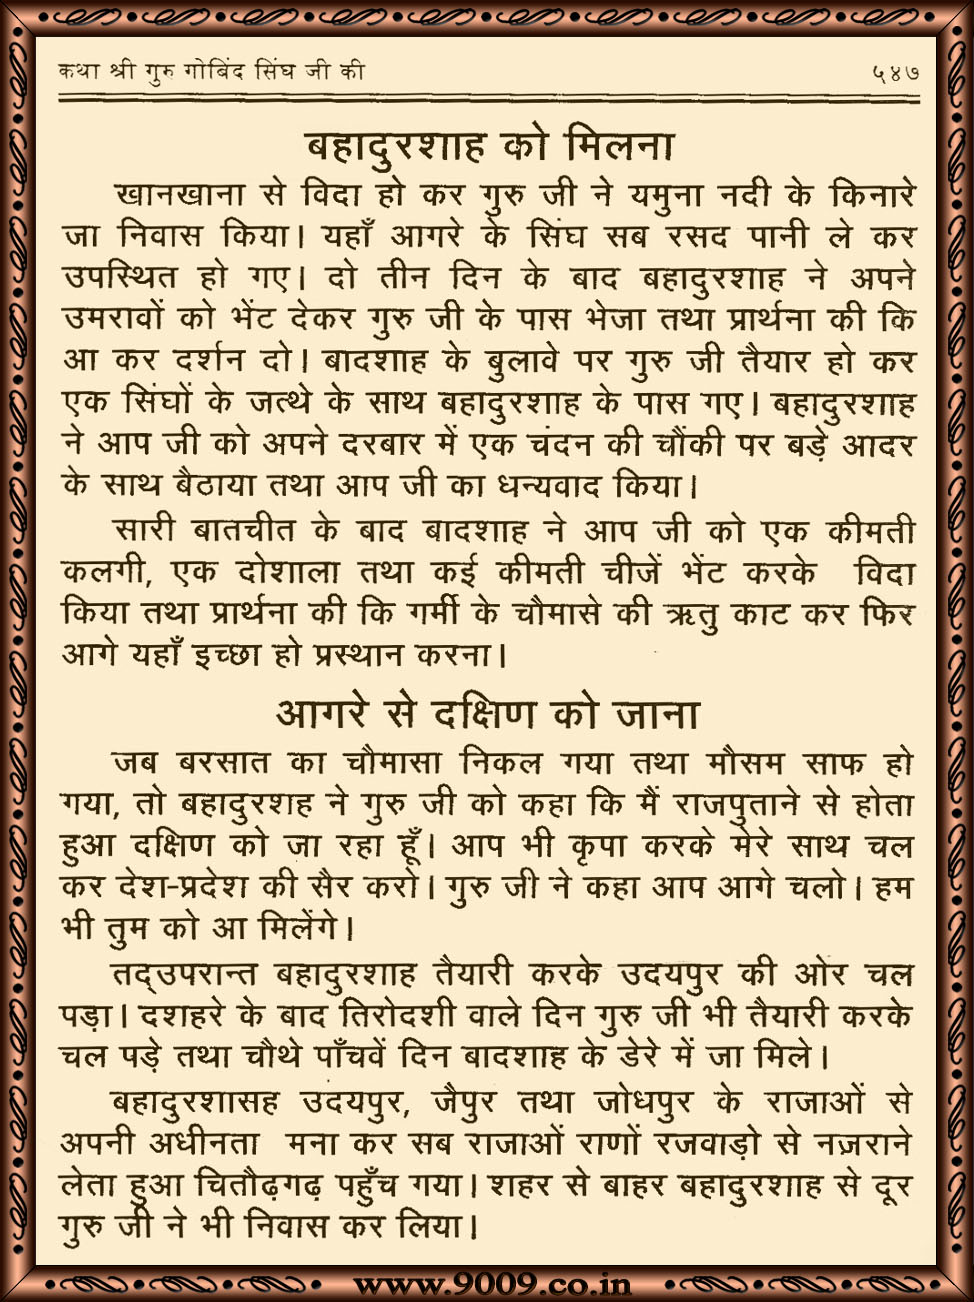 कथा श्री गुरु गोबिंद सिंघ जी की ५४७
बहादुरशाह को मिलना
खानखाना से विदा हो कर गुरु जी ने यमुना नदी के किनारे
जा निवास किया। यहाँ आगरे के सिंघ सब रसद पानी ले कर
उपस्थित हो गए। दो तीन दिन के बाद बहादुरशाह ने अपने
उमरावों को भेंट देकर गुरु जी के पास भेजा तथा प्रार्थना की कि
आ कर दर्शन दो। बादशाह के बुलावे पर गुरु जी तैयार हो कर
एक सिंघों के जत्थे के साथ बहादुरशाह के पास गए। बहादुरशाह
ने आप जी को अपने दरबार में एक चंदन की चौंकी पर बड़े आदर
के साथ बैठाया तथा आप जी का धन्यवाद किया।
सारी बातचीत के बाद बादशाह ने आप जी को एक कीमती
कलगी, एक दोशाला तथा कई कीमती चीजें भेंट करके विदा
किया तथा प्रार्थना की कि गर्मी के चौमासे की ऋतु काट कर फिर
आगे यहाँ इच्छा हो प्रस्थान करना।
आगरे से दक्षिण को जाना
जब बरसात का चौमासा निकल गया तथा मौसम साफ हो
गया, तो बहादुरशह ने गुरु जी को कहा कि मैं राजपुताने से होता
हुआ दक्षिण को जा रहा हूँ। आप भी कृपा करके मेरे साथ चल
कर देश-प्रदेश की सैर करो। गुरु जी ने कहा आप आगे चलो। हम
भी तुम को आ मिलेंगे।
तद्उपरान्त बहादुरशाह तैयारी करके उदयपुर की ओर चल
पड़ा। दशहरे के बाद तिरोदशी वाले दिन गुरु जी भी तैयारी करके
चल पड़े तथा चौथे पाँचवें दिन बादशाह के डेरे में जा मिले।
बहादुरशासह उदयपुर, जैपुर तथा जोधपुर के राजाओं से
अपनी अधीनता मना कर सब राजाओं राणों रजवाड़ो से नज़राने
लेता हुआ चितौढ़गढ़ पहुँच गया। शहर से बाहर बहादुरशाह से दूर
गुरु जी ने भी निवास कर लिया।
www.9009.co.in